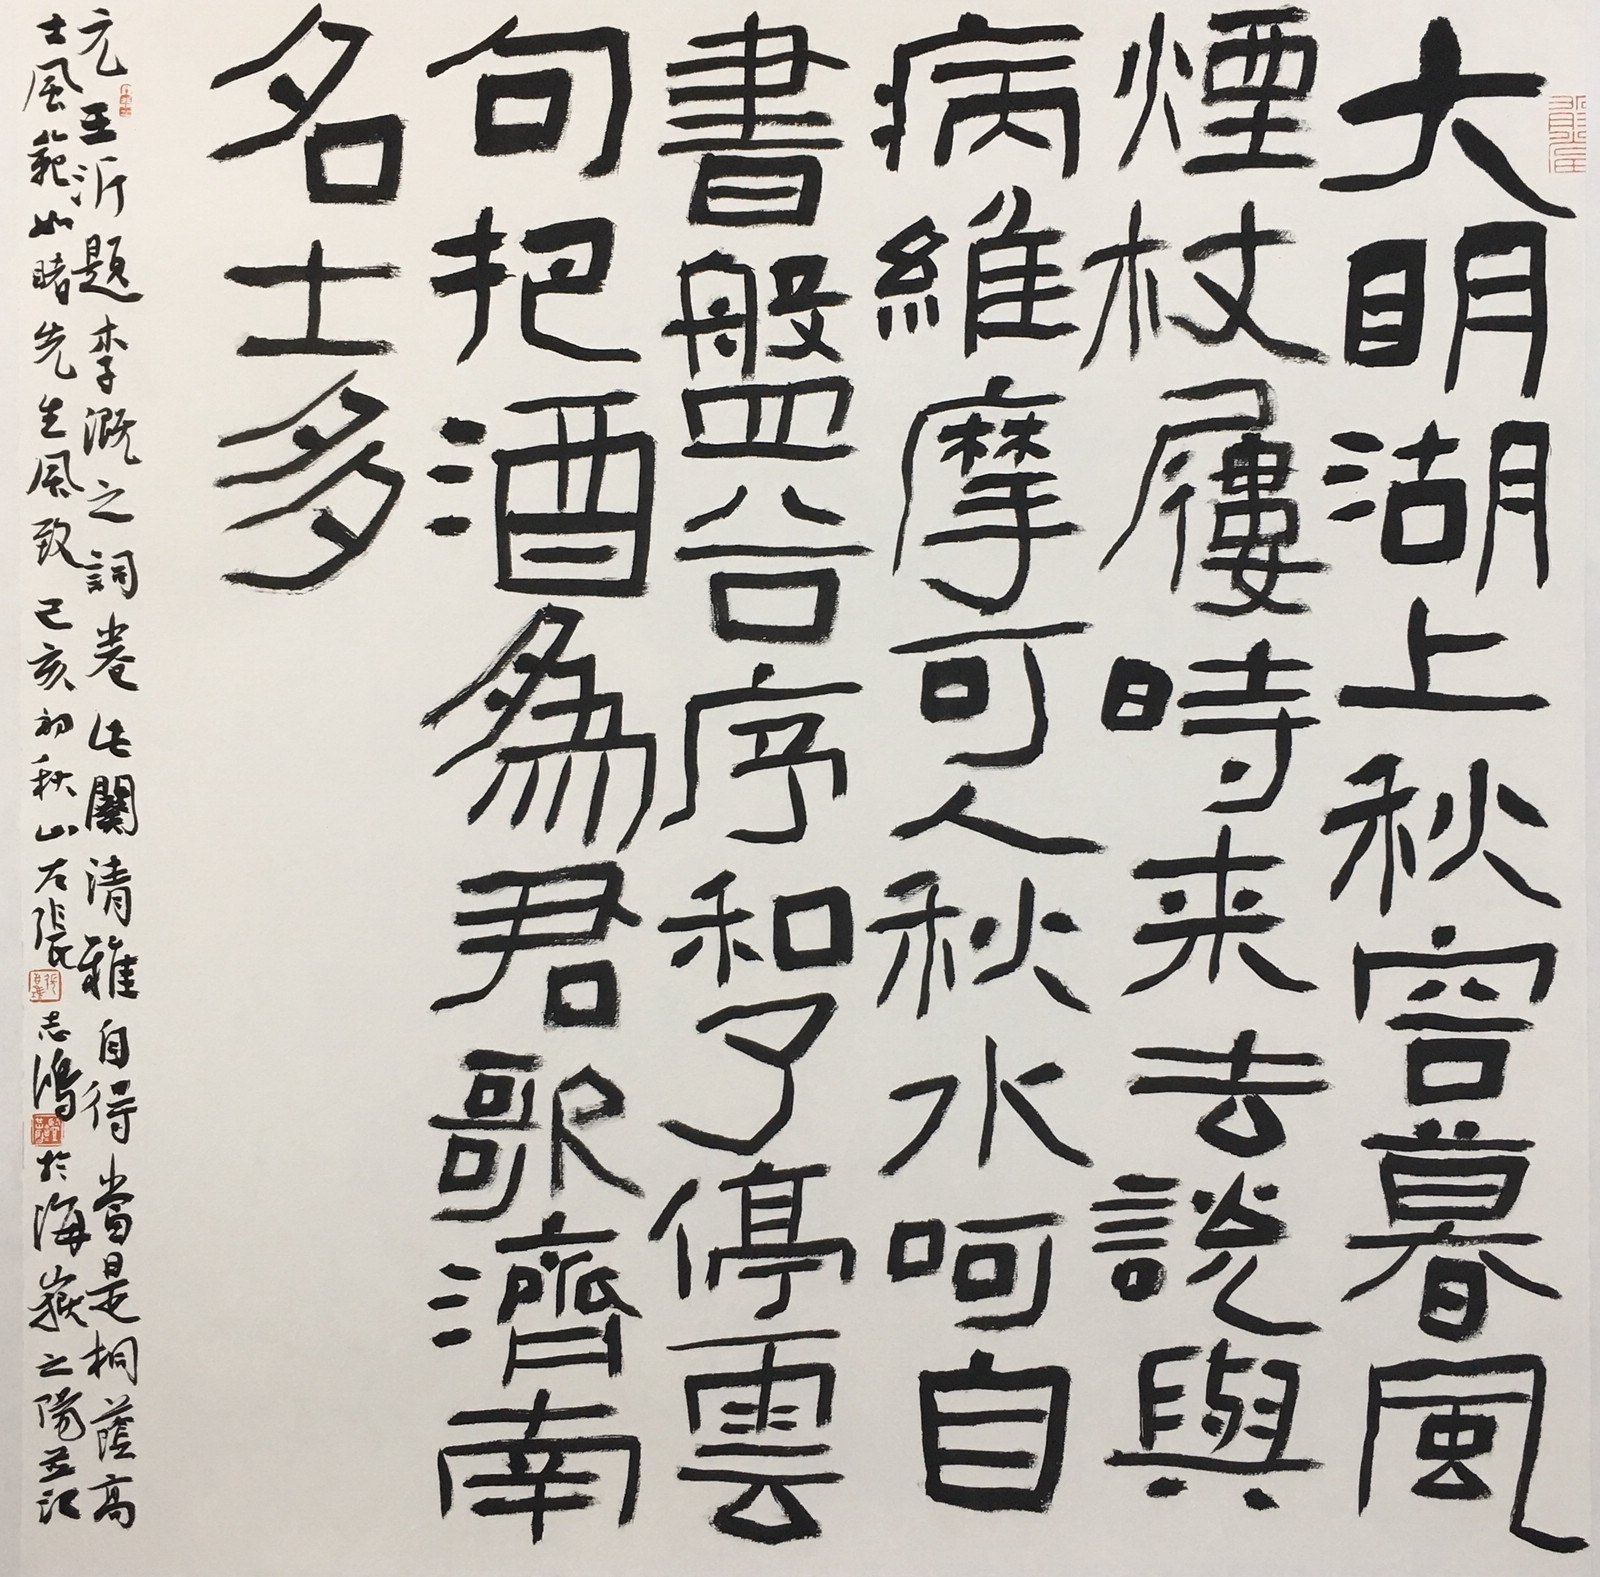 大明湖上秋容暮風
煙杖屨時来去談與
病維摩可人秋水呵自
書盤谷序和了停雲
句把酒為君歌濟南
名士多
元王沂題李溉之詞卷此闋清雅自得當是桐蔭高
士風範如睹先生風致己亥初秋山左張志鴻於海嶽之陽並記